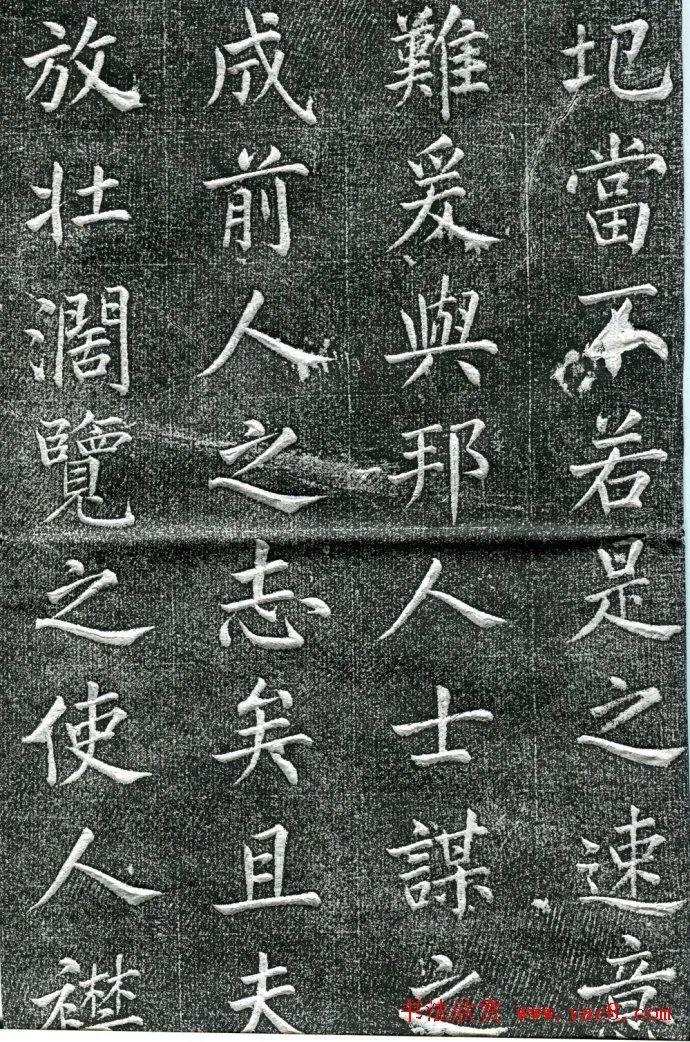 圮當不若是之速意
難爰與邦人士謀之
成前人之志矣且夫
放壯濶覽之使人襟
书法欣赏 www.yac8.com